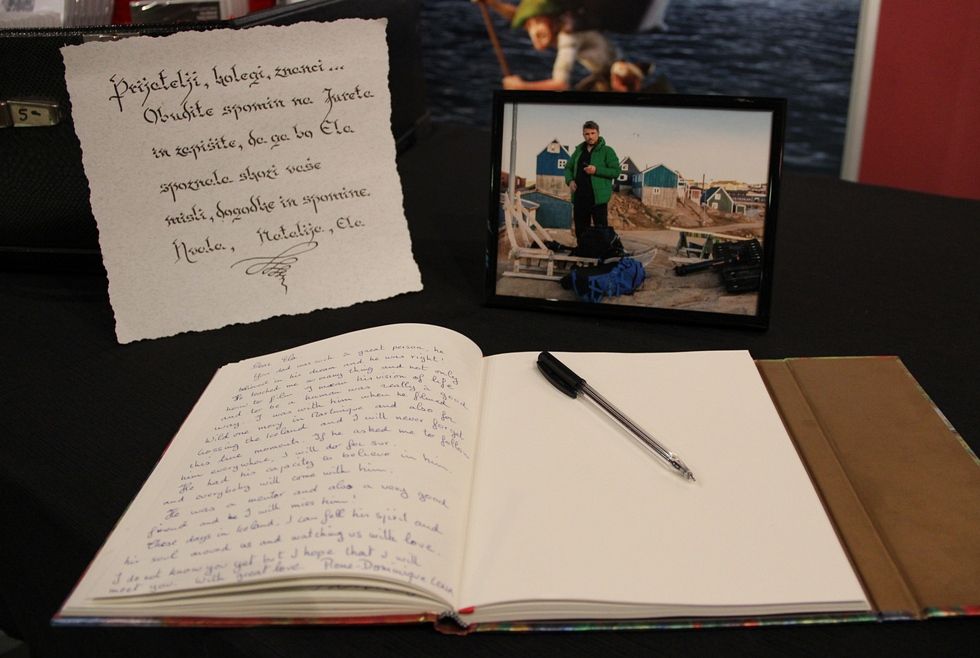 5-
Prijatelji, kolegi, znanci...
Obudite spomin na Jureta
in zapišite, da ga bo Ela
spoznala skozi vaše
misli, dogodke in spomine.
Hvala, Natalija, Ela
Dear Ela.
Your dad was such a great person, he
believed in his dream and he was right!
He teached me so many thing and not only
how to film. I mean his vision of life
and to be a human was really a good
way. I was with him when he filmed
Wild one mory in Martinique and also for
Crossing the Iceland and I will never forget
this time moments. If he asked me to follow
him everywhere, I will do for sur.
He had his capacity to believe in him.
and everybody will come with him.
He was a mentor and also a very good
friend and I will miss him!
These days in Iceland, I can fell his spirit and
his soul moved us and watching us with love.
I do not know you yet but I hope that I will
meet you. With great love. Pierre-Dominique